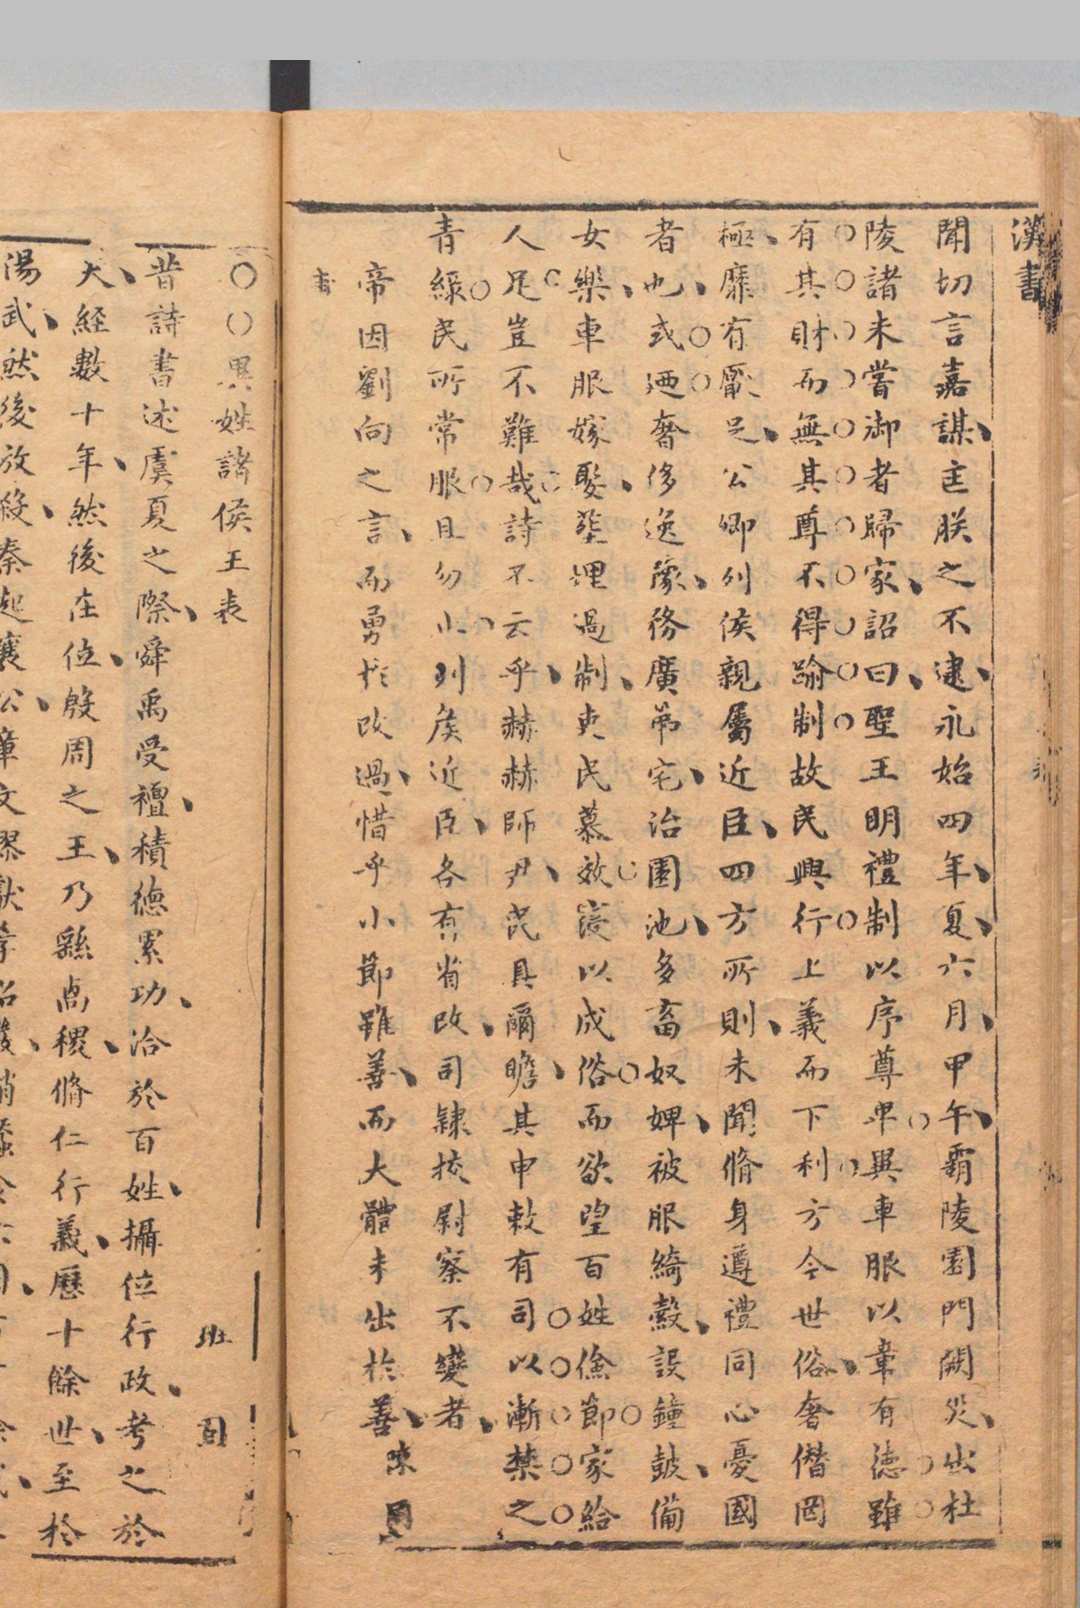 漢書
聞切言嘉謀匡朕之不逮永始四年夏六月甲午霸陵園門闕災出杜
陵諸未嘗御者歸家詔曰聖王明禮制以序尊卑異車服以章有德雖
有其財而無其尊不得踰制故民興行上義而下利方今世俗奢僭罔
極靡有厭足公卿列侯親屬近臣四方所則未聞脩身遵禮同心憂國
者也或廼奢侈逸豫務廣第宅治園池多畜奴婢被服綺縠設鐘鼓備
女樂車服嫁娶塟埋過制吏民慕效寖以成俗而欲望百姓儉節家給
人足豈不難哉詩不云乎赫赫師尹民具爾瞻其申敕有司以漸禁之
青綠民所常服且勿止列侯近臣各有省改司隸挍尉察不變者
帝因劉向之言而勇於改過惜乎小節雖善而大體未出於善
○○異姓諸侯王表 班固
昔詩書述虞夏之際舜禹受禪積德累功洽於百姓攝位行政考之於
天經數十年然後在位殷周之王乃繇卨稷脩仁行義歷十餘世至於
湯武然後放殺秦起襄公章文繆獻孝昭嚴稍蠶食六國